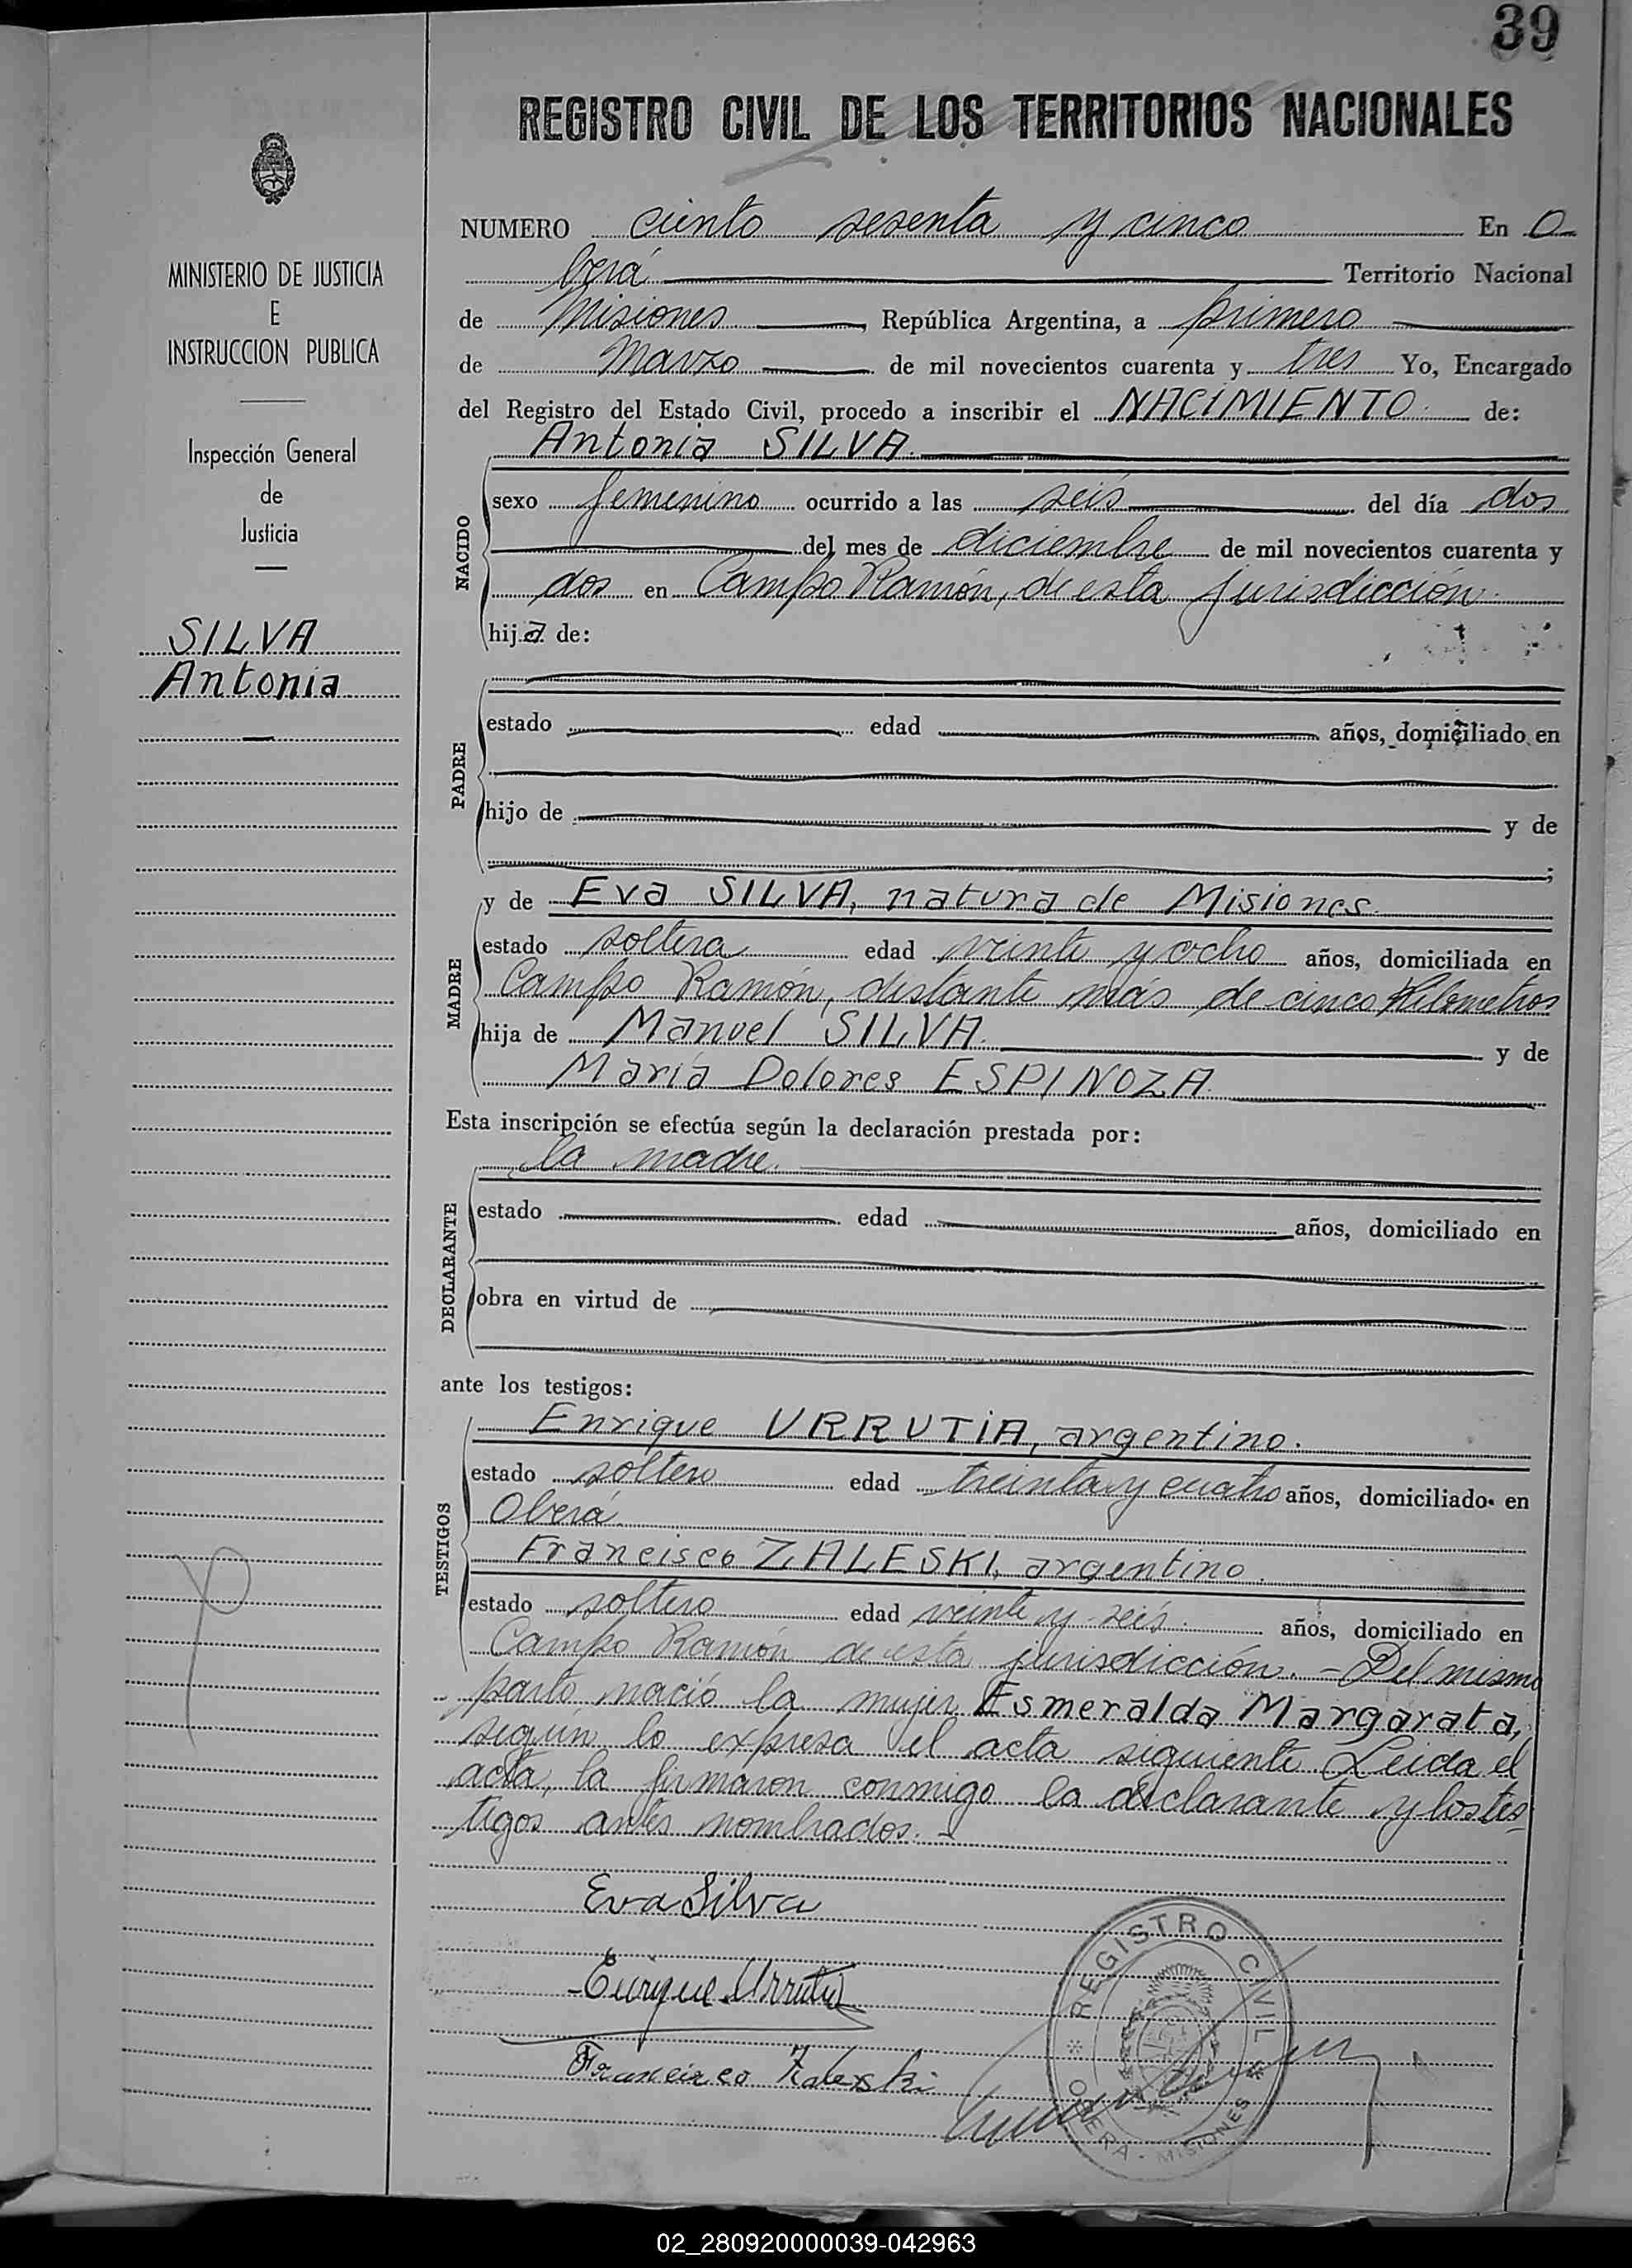 39
REGISTRO CIVIL DE LOS TERRITORIOS NACIONALES
MINISTERIO DE JUSTICIA
E
INSTRUCCION PUBLICA
Inspección General
de
Justicia
SILVA
Antonia
NUMERO ciento sesenta y cinco En O
berá Territorio Nacional
de Misiones, República Argentina, a primero
de Marzo de mil novecientos cuarenta y tres Yo, Encargado
del Registro del Estado Civil, procedo a inscribir el NACIMIENTO de:
Antonia SILVA.
NACIDO
sexo femenino ocurrido a las seis del día dos
del mes de diciembre de mil novecientos cuarenta y
dos en Campo Ramón, de esta jurisdicción
hija de:
PADRE
estado edad años, domiciliado en
hijo de y de
;
MADRE
y de Eva SILVA, natura de Misiones
estado soltera edad veinte y ocho años, domiciliada en
Campo Ramón, distante más de cinco Kilometros
hija de Manuel SILVA. y de
María Dolores ESPINOZA.
Esta inscripción se efectúa según la declaración prestada por:
la madre.
DECLARANTE
estado edad años, domiciliado en
obra en virtud de
ante los testigos:
TESTIGOS
Enrique URRUTIA, argentino.
estado soltero edad treinta y cuatro años, domiciliado en
Oberá
Francisco ZALESKI, argentino.
estado soltero edad veinte y seis. años, domiciliado en
Campo Ramón de esta jurisdicción. - Del mismo
parto nació la mujer Esmeralda Margarata,
según lo expresa el acta siguiente Leida el
acta, la firmaron conmigo la declarante y los tes=
tigos antes nombrados. -
Eva Silva
Enrique Urrutia
Francisco Zaleski
REGISTRO CIVIL
OBERA - MISIONES
02_280920000039-042963